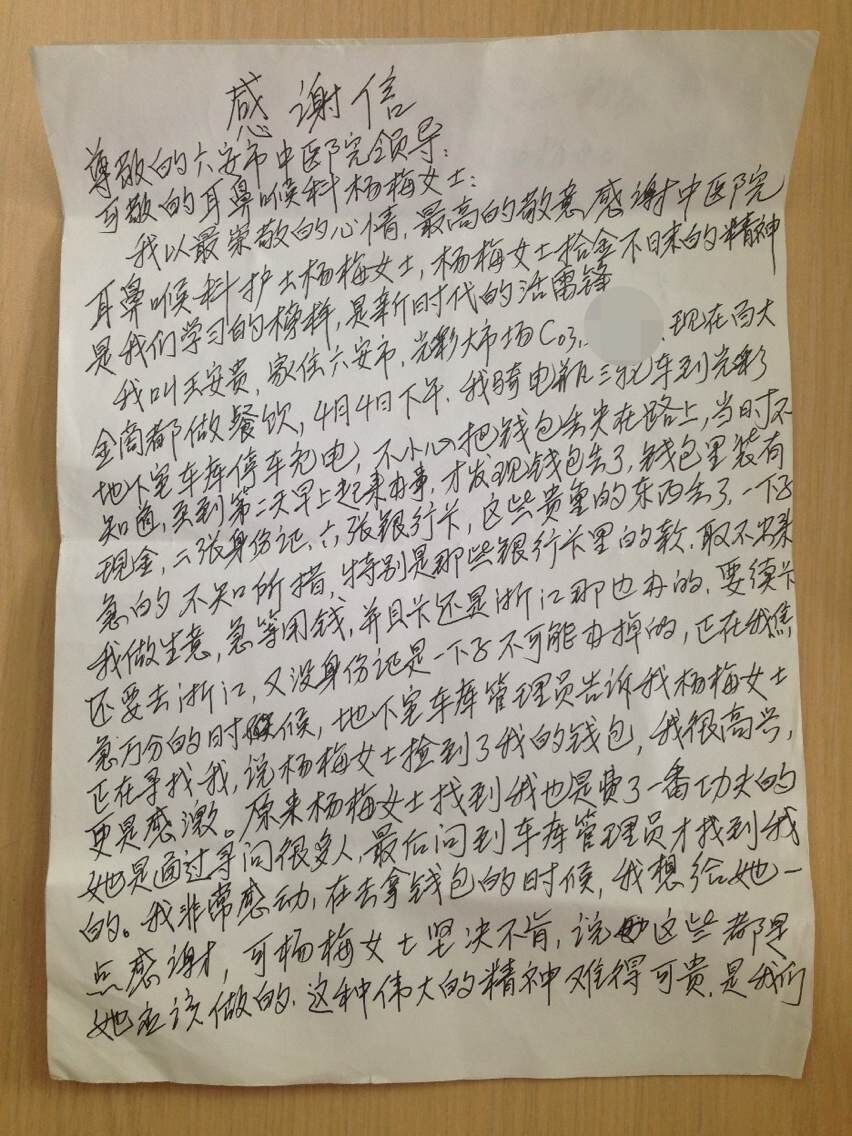 感谢信
尊敬的六安市中医院领导：
可敬的耳鼻喉科杨梅女士：
我以最崇敬的心情，最高的敬意感谢中医院
耳鼻喉科护士杨梅女士，杨梅女士拾金不日未的精神
是我们学习的榜样，是新时代的活雷锋
我叫王安贵，家住六安市，光彩大市场C03，现在百大
金商都做餐饮，4月4日下午，我骑电瓶三轮车到光彩
地下室车库停车充电，不小心把钱包丢失在路上，当时不
知道，到第二天早上起来办事，才发现钱包丢了，钱包里装有
现金，二张身份证、六张银行卡，这些贵重的东西丢了，一下子
急的不知所措，特别是那些银行卡里的款，取不出来
我做生意，急等用钱，并且卡还是浙江那边办的，要续卡
还要去浙江，又没身份证是一下子不可能办掉的，正在我焦
急万分的时候，地下室车库管理员告诉我杨梅女士
正在寻找我，说杨梅女士捡到了我的钱包，我很高兴，
更是感激。原来杨梅女士找到我也是费了一番功夫的
她是通过寻问很多人，最后问到车库管理员才找到我
的。我非常感动，在去拿钱包的时候，我想给她一
点感谢，可杨梅女士坚决不肯，说这些都是
她应该做的，这种伟大的精神难得可贵，是我们